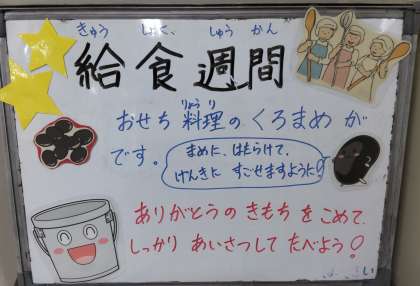 きゅう しょく しゅう かん
給食週間
りょうり
おせち料理のくろまめが
です。
まめに、はたらけて、
けんきに すごせますように!
ありがとうの きもちをこめて
しっかり あいさつして たべよう!